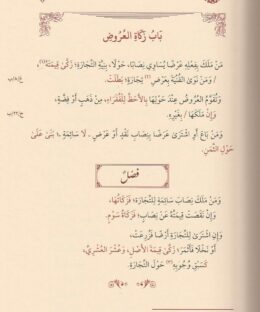 بَابُ زَكَاةِ العُرُوضِ
مَنْ مَلَكَ بِفِعْلِهِ عَرْضًا يُسَاوِي نِصَابًا، حَوْلًا، بِنِيَّةِ التِّجَارَةِ؛ زَكَّى قِيمَتَهُ،
/ وَمَنْ نَوَى القُنْيَةَ بِعَرْضِ تِجَارَةٍ؛ بَطَلَتْ.
وَتُقَوَّمُ العُرُوضُ عِنْدَ حَوْلِهَا بِالأَحَظِّ لِلْفُقَرَاءِ، مِنْ ذَهَبٍ أَوْ فِضَّةٍ،
وَإِنْ مَلَكَهَا / بِغَيْرِهِ.
وَمَنْ بَاعَ أَوِ اشْتَرَى عَرْضًا بِنِصَابِ نَقْدٍ أَوْ عَرْضٍ ـ لَا سَائِمَةٍ ـ؛ بَنَى عَلَى
حَوْلِ الثَّمَنِ.
فَصْلٌ
وَمَنْ مَلَكَ نِصَابَ سَائِمَةٍ لِلتِّجَارَةِ؛ فَزَكَاتُهَا،
وَإِنْ نَقَصَتْ قِيمَتُهُ عَنْ نِصَابٍ؛ فَزَكَاةُ سَوْمٍ.
وَإِنِ اشْتَرَى لِلتِّجَارَةِ أَرْضًا فَزُرِعَتْ،
أَوْ نَخْلًا فَأَثْمَرَ؛ زَكَّى قِيمَةَ الأَصْلِ، وَعَشَّرَ العُشْرِيَّ،
كَسَبْقِ وُجُوبِهِ حَوْلَ التِّجَارَةِ.